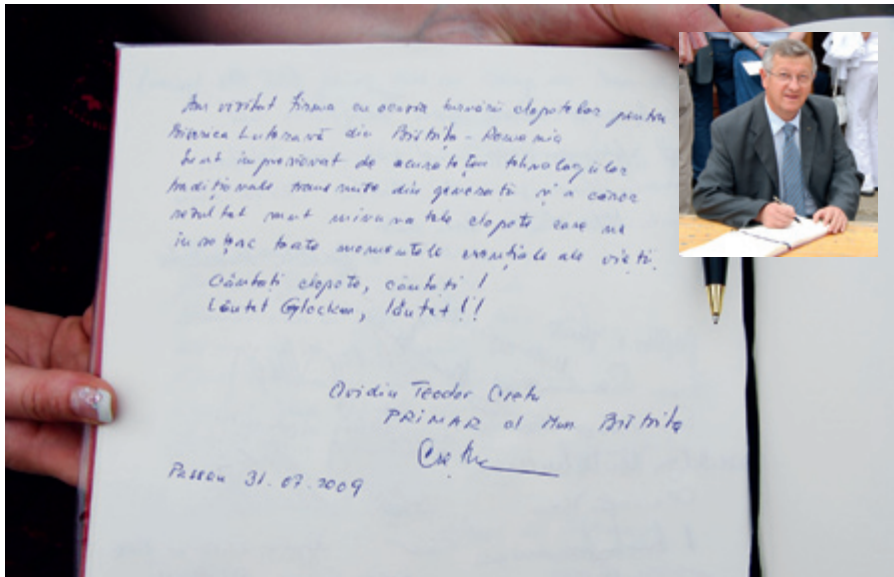 Am vizitat firma cu ocazia turnării clopotelor pentru
Biserica Luterană din Bistrița - Romania
Sunt impresionat de acuratețea tehnologiilor
tradiționale transmise din generații și a căror
rezultat sunt minunatele clopote care ne
însoțesc toate momentele esențiale ale vieții.
Cântați clopote, cântați!
Läutet Glocken, läutet!!
Ovidiu Teodor Crețu
PRIMAR al Mun Bistrița
Crețu
Passau 31.07.2009